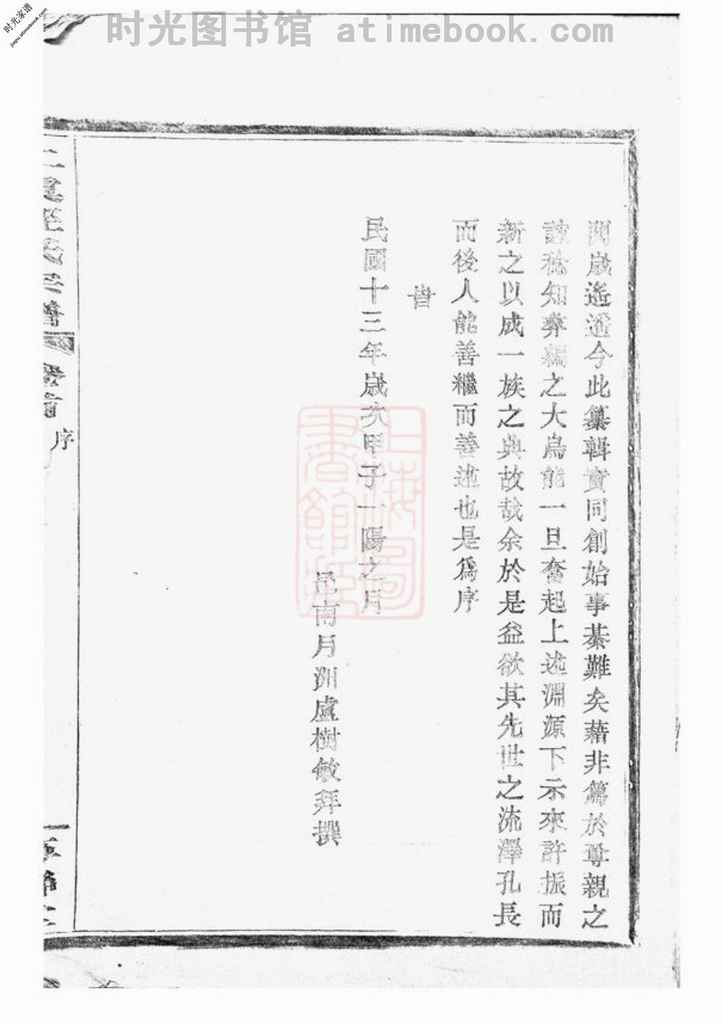 时光图书馆 atimebook.com
时光家谱
歲遙遙今此纂輯實同創始事綦難矣藉非篤於尊親之
誼稔知彝之大烏能一旦奮起上述淵源下示來許振而
新之以成一族之典故哉余於是益欲其先世之流澤孔長
而後人能善繼而善述也是爲序
旹
民國十三年歲次甲子一陽之月
邑南月洲盧樹敏拜撰
氏宗譜
首
序
上海圖書館藏